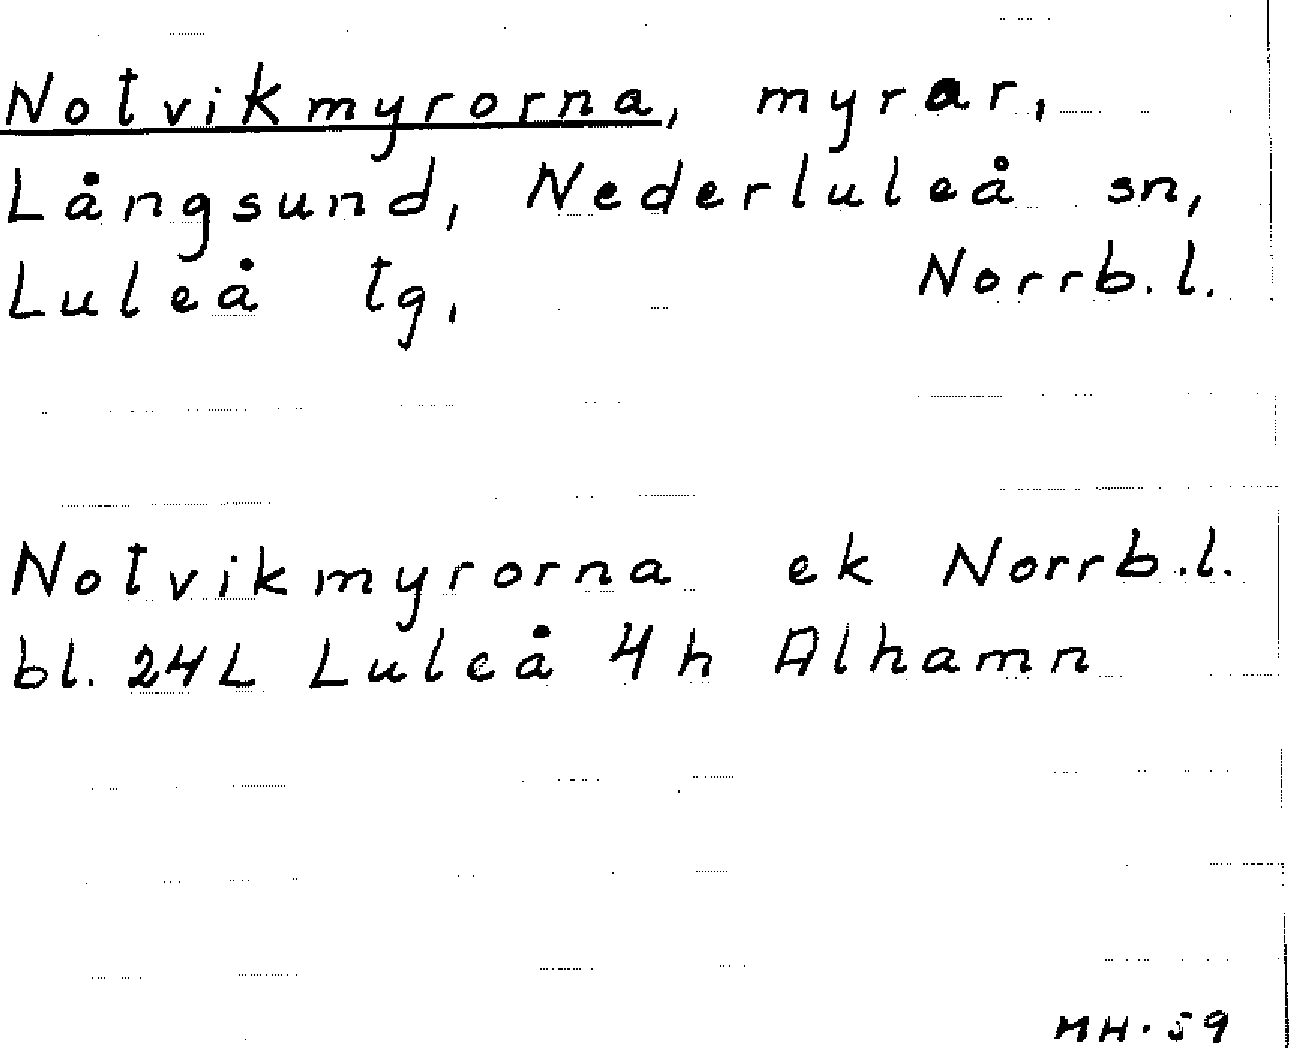 Notvikmyrorna, myrar,
Långsund, Nederluleå sn,
Luleå tg, Norrb.l.
Notvikmyrorna ek Norrb.l.
bl. 24L Luleå 4h Alhamn
MH.59